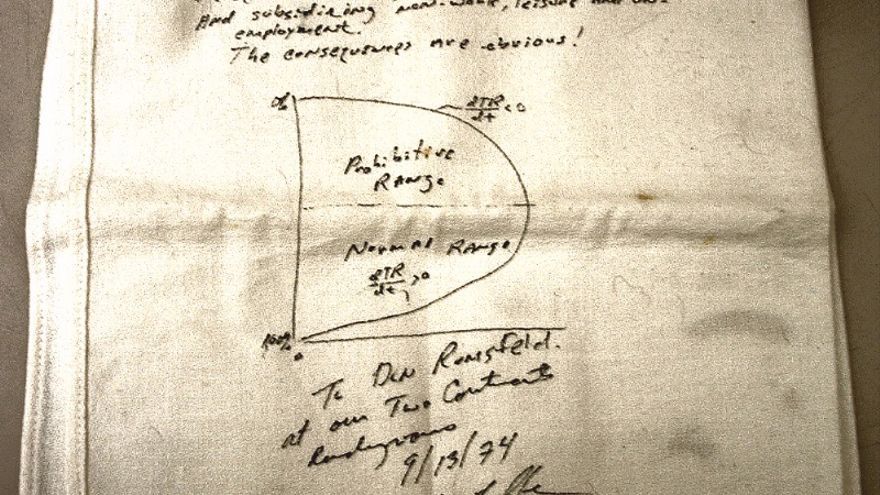 And subsidizing non-work, leisure and un-
employment.
The consequences are obvious!
0%
dTR/dt < 0
Prohibitive
Range
Normal Range
dTR/dt > 0
100%
0
To Don Rumsfeld.
at our Two Continents
Rendezvous
9/13/74